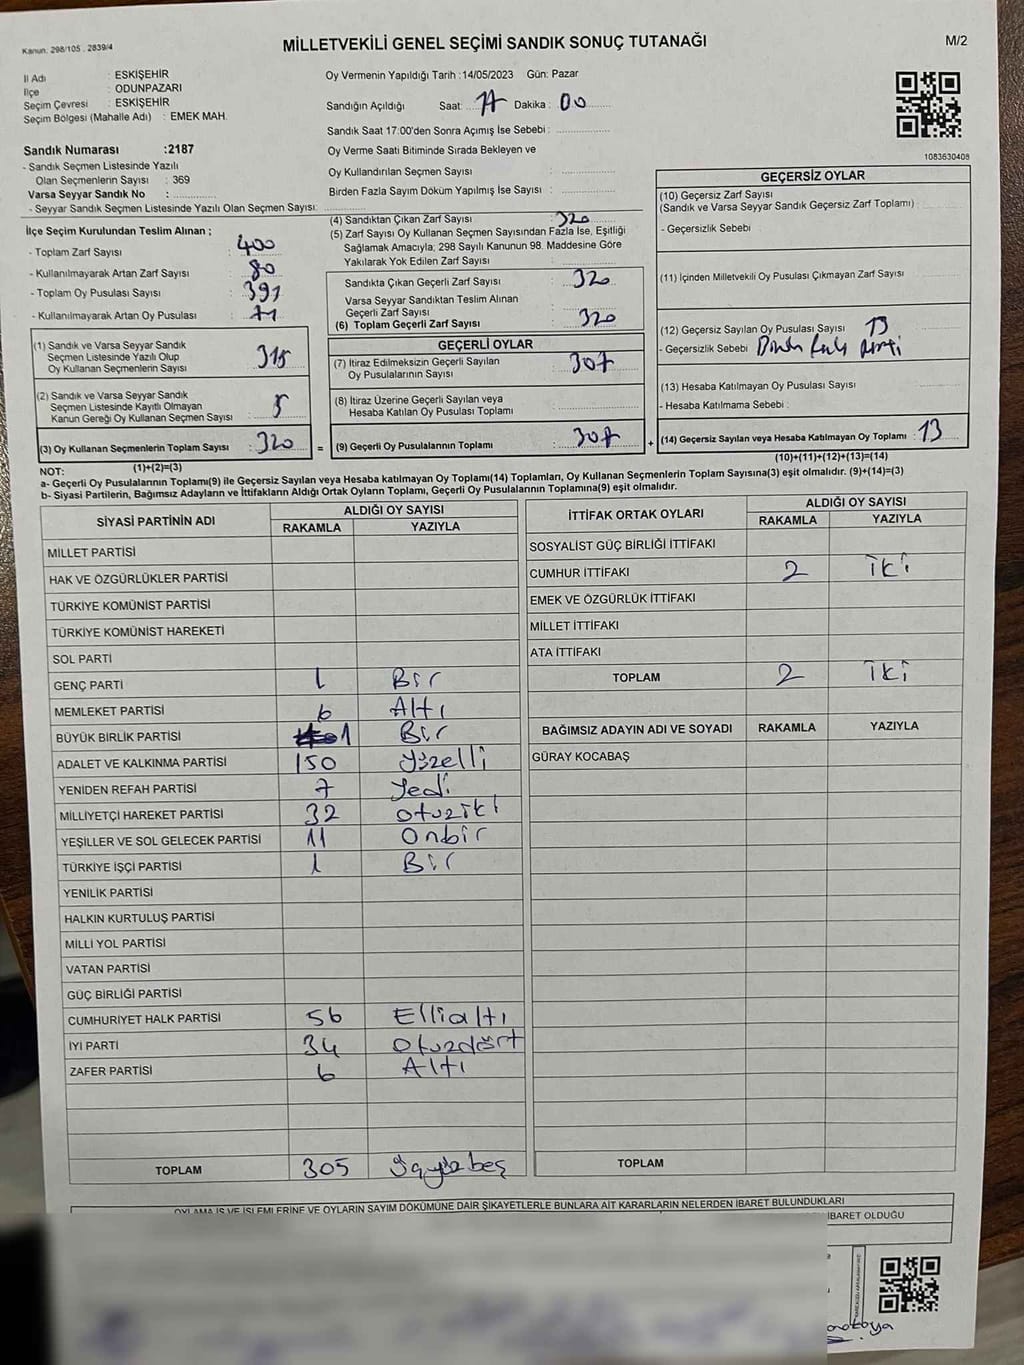 Kanun: 298/105 , 2839/4
MİLLETVEKİLİ GENEL SEÇİMİ SANDIK SONUÇ TUTANAĞI
M/2
İl Adı : ESKİŞEHİR
İlçe : ODUNPAZARI
Seçim Çevresi : ESKİŞEHİR
Seçim Bölgesi (Mahalle Adı) : EMEK MAH.
Sandık Numarası :2187
- Sandık Seçmen Listesinde Yazılı
Olan Seçmenlerin Sayısı : 369
Varsa Seyyar Sandık No :
- Seyyar Sandık Seçmen Listesinde Yazılı Olan Seçmen Sayısı:
Oy Vermenin Yapıldığı Tarih :14/05/2023 Gün: Pazar
Sandığın Açıldığı Saat: 17 Dakika : 00
Sandık Saat 17:00'den Sonra Açımış İse Sebebi :
Oy Verme Saati Bitiminde Sırada Bekleyen ve
Oy Kullandırılan Seçmen Sayısı :
Birden Fazla Sayım Döküm Yapılmış İse Sayısı :
1083630408
İlçe Seçim Kurulundan Teslim Alınan ;
- Toplam Zarf Sayısı : 400
- Kullanılmayarak Artan Zarf Sayısı : 80
- Toplam Oy Pusulası Sayısı : 391
- Kullanılmayarak Artan Oy Pusulası : 71
(1) Sandık ve Varsa Seyyar Sandık
Seçmen Listesinde Yazılı Olup
Oy Kullanan Seçmenlerin Sayısı : 315
(2) Sandık ve Varsa Seyyar Sandık
Seçmen Listesinde Kayıtlı Olmayan
Kanun Gereği Oy Kullanan Seçmen Sayısı : 5
(3) Oy Kullanan Seçmenlerin Toplam Sayısı : 320 =
(1)+(2)=(3)
(4) Sandıktan Çıkan Zarf Sayısı : 320
(5) Zarf Sayısı Oy Kullanan Seçmen Sayısından Fazla İse, Eşitliği
Sağlamak Amacıyla; 298 Sayılı Kanunun 98. Maddesine Göre
Yakılarak Yok Edilen Zarf Sayısı :
Sandıkta Çıkan Geçerli Zarf Sayısı : 320
Varsa Seyyar Sandıktan Teslim Alınan
Geçerli Zarf Sayısı :
(6) Toplam Geçerli Zarf Sayısı : 320
GEÇERLİ OYLAR
(7) İtiraz Edilmeksizin Geçerli Sayılan
Oy Pusulalarının Sayısı : 307
(8) İtiraz Üzerine Geçerli Sayılan veya
Hesaba Katılan Oy Pusulası Toplamı :
(9) Geçerli Oy Pusulalarının Toplamı : 307 +
GEÇERSİZ OYLAR
(10) Geçersiz Zarf Sayısı
(Sandık ve Varsa Seyyar Sandık Geçersiz Zarf Toplamı) :
- Geçersizlik Sebebi :
(11) İçinden Milletvekili Oy Pusulası Çıkmayan Zarf Sayısı :
(12) Geçersiz Sayılan Oy Pusulası Sayısı : 13
- Geçersizlik Sebebi :
(13) Hesaba Katılmayan Oy Pusulası Sayısı :
- Hesaba Katılmama Sebebi :
(14) Geçersiz Sayılan veya Hesaba Katılmayan Oy Toplamı : 13
(10)+(11)+(12)+(13)=(14)
NOT:
a- Geçerli Oy Pusulalarının Toplamı(9) ile Geçersiz Sayılan veya Hesaba katılmayan Oy Toplamı(14) Toplamları, Oy Kullanan Seçmenlerin Toplam Sayısına(3) eşit olmalıdır. (9)+(14)=(3)
b- Siyasi Partilerin, Bağımsız Adayların ve İttifakların Aldığı Ortak Oyların Toplamı, Geçerli Oy Pusulalarının Toplamına(9) eşit olmalıdır.
SİYASİ PARTİNİN ADI ALDIĞI OY SAYISI
RAKAMLA YAZIYLA
MİLLET PARTİSİ
HAK VE ÖZGÜRLÜKLER PARTİSİ
TÜRKİYE KOMÜNİST PARTİSİ
TÜRKİYE KOMÜNİST HAREKETİ
SOL PARTİ
GENÇ PARTİ 1 Bir
MEMLEKET PARTİSİ 6 Altı
BÜYÜK BİRLİK PARTİSİ 1 Bir
ADALET VE KALKINMA PARTİSİ 150 Yüzelli
YENİDEN REFAH PARTİSİ 7 Yedi
MİLLİYETÇİ HAREKET PARTİSİ 32 otuziki
YEŞİLLER VE SOL GELECEK PARTİSİ 11 Onbir
TÜRKİYE İŞÇİ PARTİSİ 1 Bir
YENİLİK PARTİSİ
HALKIN KURTULUŞ PARTİSİ
MİLLİ YOL PARTİSİ
VATAN PARTİSİ
GÜÇ BİRLİĞİ PARTİSİ
CUMHURİYET HALK PARTİSİ 56 Ellialtı
İYİ PARTİ 34 Otuzdört
ZAFER PARTİSİ 6 Altı
TOPLAM 305 üçyüzbeş
İTTİFAK ORTAK OYLARI ALDIĞI OY SAYISI
RAKAMLA YAZIYLA
SOSYALİST GÜÇ BİRLİĞİ İTTİFAKI
CUMHUR İTTİFAKI 2 iki
EMEK VE ÖZGÜRLÜK İTTİFAKI
MİLLET İTTİFAKI
ATA İTTİFAKI
TOPLAM 2 iki
BAĞIMSIZ ADAYIN ADI VE SOYADI RAKAMLA YAZIYLA
GÜRAY KOCABAŞ
TOPLAM
OYLAMA İŞ VE İŞLEMLERİNE VE OYLARIN SAYIM DÖKÜMÜNE DAİR ŞİKAYETLERLE BUNLARA AİT KARARLARIN NELERDEN İBARET BULUNDUKLARI
İBARET OLDUĞU